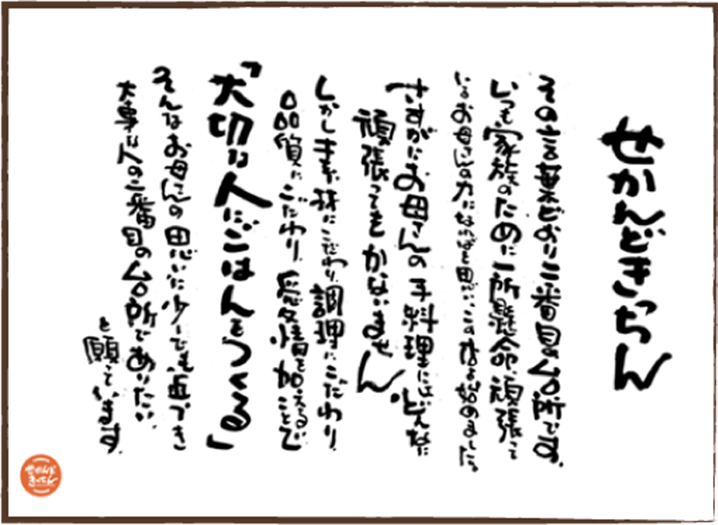 せかんどきっちん
その言葉どおり二番目の台所です。
いつも家族のために一所懸命、頑張って
いるお母さんの力になればと思い、この店を始めました。
さすがにお母さんの手料理にはどんなに
頑張ってもかないません。
しかし素材にこだわり、調理にこだわり、
品質にこだわり、愛情を加えることで
「大切な人にごはんをつくる」
そんなお母さんの思いに少しでも近づき
大事な人の二番目の台所でありたい
と願っています。